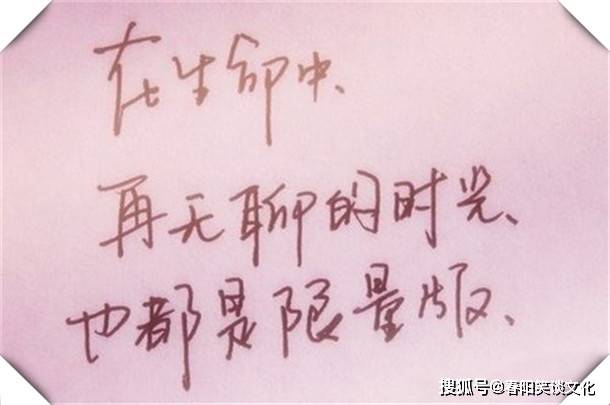 在生命中、
再无聊的时光、
也都是限量版、
搜狐号@春阳笑谈文化